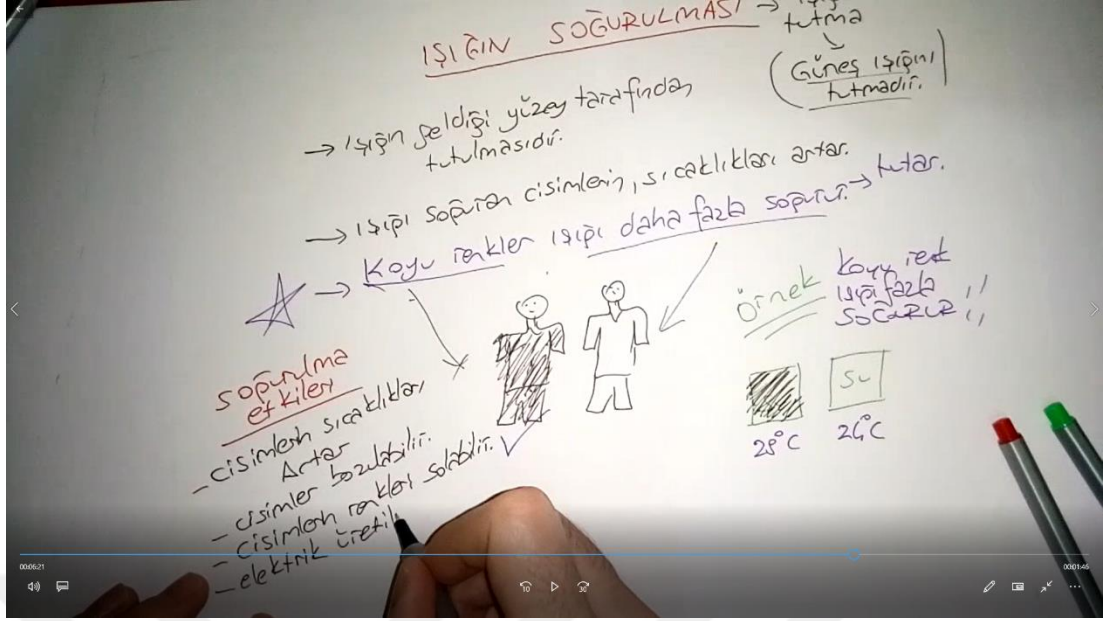 IŞIĞIN SOĞURULMASI →
tutma
(Güneş ışığını
tutmadır.)
→ Işığın geldiği yüzey tarafından
tutulmasıdır.
→ Işığı soğuran cisimlerin, sıcaklıkları artar.
→ Koyu renkler ışığı daha fazla soğurur. → tutar.
örnek
koyu renk
ışığı fazla
SOĞURUR !!
Su
28°C
24°C
soğurulma
etkileri
- cisimlerin sıcaklıkları
Artar
- cisimler bozulabilir.
- cisimlerin renkleri solabilir.
- elektrik üretil
00:06:21
00:01:46
10
30